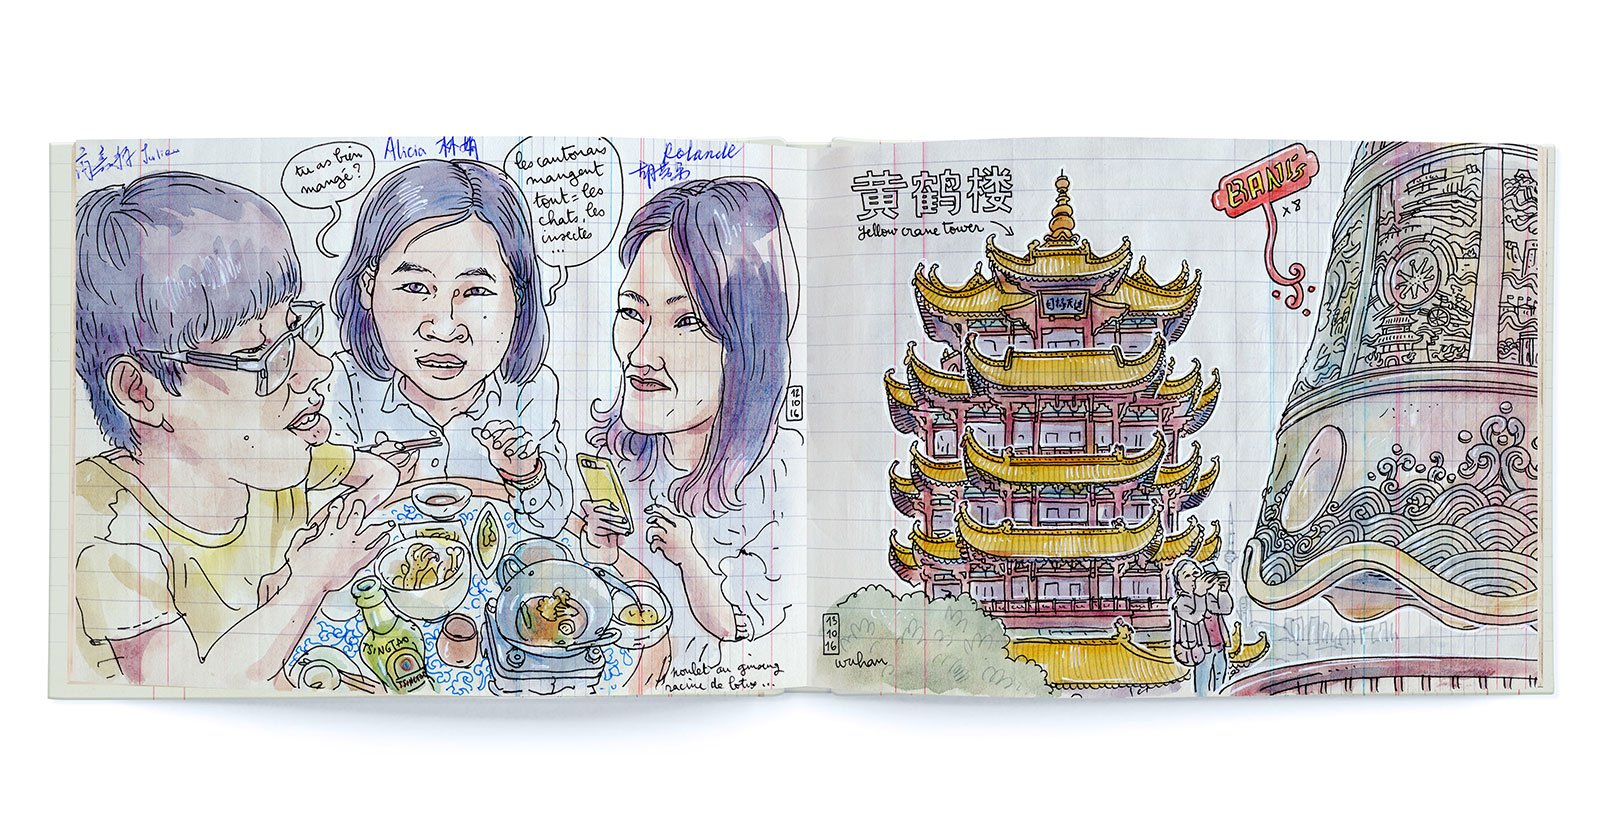 Julie
tu as bien
mangé?
Alicia 林娟
les cantonais
mangent
tout = les
chats, les
insectes
...
Rolande
12
10
16
TSINGTAO
poulet au ginseng
racine de lotus...
黄鹤楼
yellow crane tower
BANG
x 8
13
10
16
wuhan